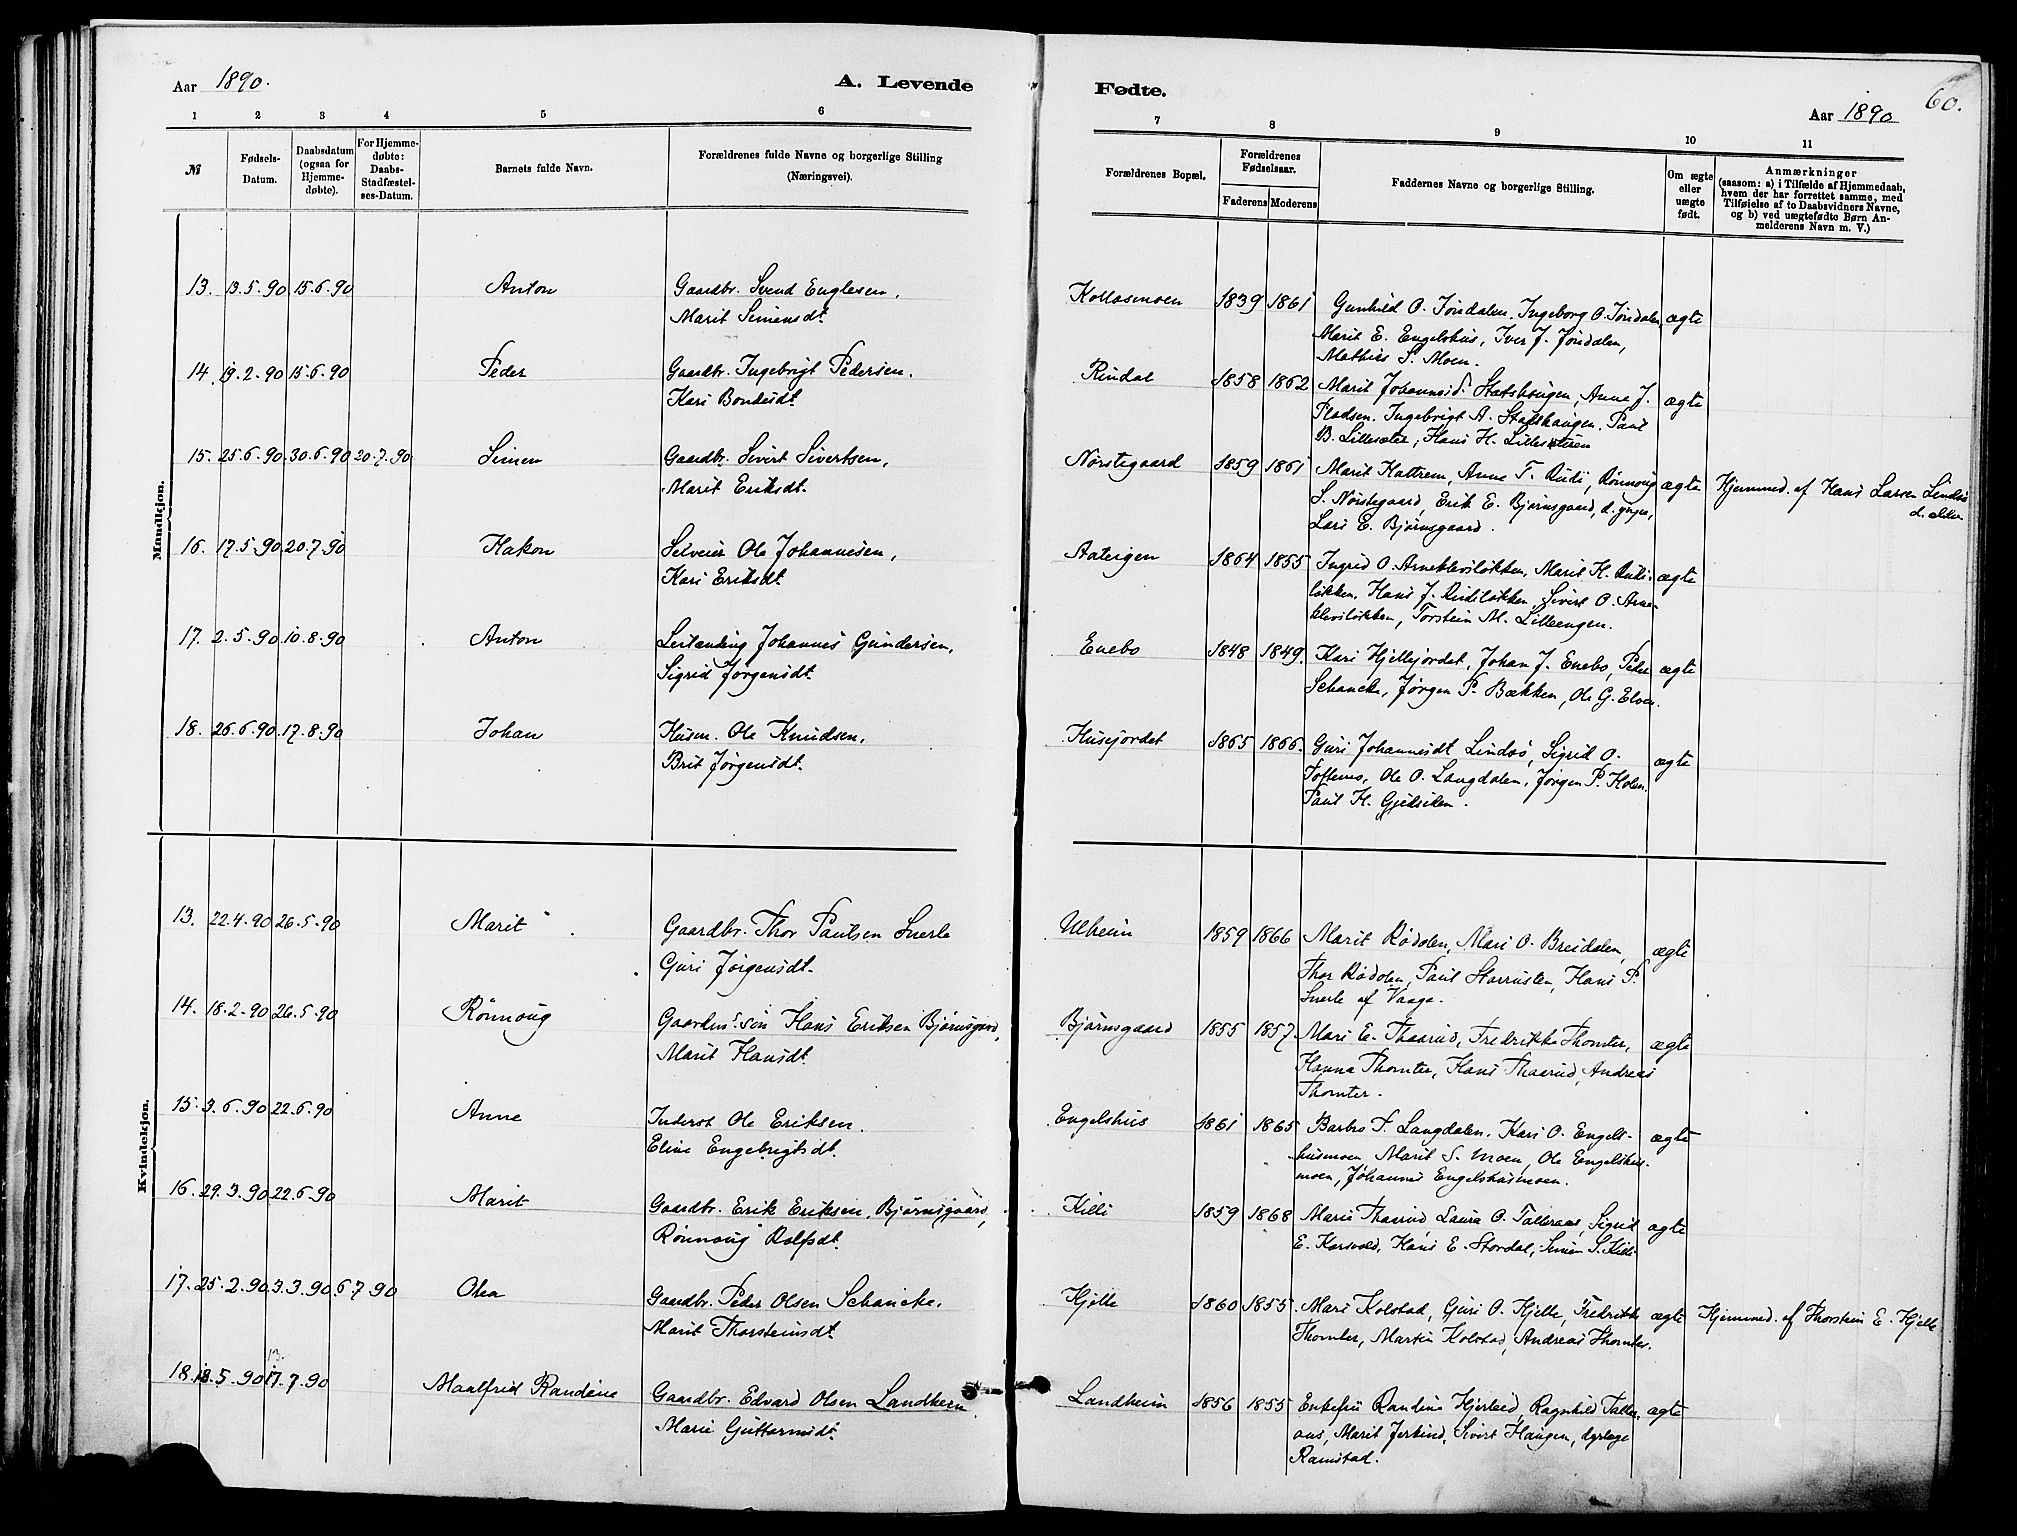 Aar 1890.
A. Levende
1 2 3 4 5 6
№
Fødsels-
Datum.
Daabsdatum
(ogsaa for
Hjemme-
døbte).
For Hjemme-
døbte:
Daabs-
Stadfæstel-
ses-Datum.
Barnets fulde Navn.
Forældrenes fulde Navne og borgerlige Stilling
(Næringsvei).
Mandkjøn.
13. 13.5.90 15.6.90 Anton Gaardbr. Svend Englesen,
Marit Simensdt.
14. 19.2.90 15.6.90 Peder Gaardbr. Ingebrigt Pedersen.
Kari Bondesdt.
15. 25.6.90 30.6.90 20.7.90 Simen Gaardbr. Sivert Sivertsen,
Marit Eriksdt.
16. 17.5.90 20.7.90 Hakon Selveier Ole Johannesen,
Kari Eriksdt.
17. 2.5.90 10.8.90 Anton Leilænding Johannes Gundersen,
Sigrid Jørgensdt.
18. 26.6.90 17.8.90 Johan Husm. Ole Knudsen,
Brit Jørgensdt.
Kvindekjøn.
13. 22.4.90 26.5.90 Marit Gaardbr. Thor Paulsen Snerle
Guri Jørgensdt.
14. 18.2.90 26.5.90 Rønnoug Gaardms. søn Hans Eriksen Bjørnsgaard,
Marit Hansdt.
15. 3.6.90 22.6.90 Anne Inderst Ole Eriksen.
Eline Engebrigtsdt.
16. 29.3.90 22.6.90 Marit Gaardbr. Erik Eriksen Bjørnsgaard,
Rønnoug Rolfsdt.
17. 25.2.90 3.3.90 6.7.90 Olea Gaardbr. Peder Olsen Schancke.
Marit Thorsteinsdt.
13.
18. 18.5.90 17.7.90 Maalfrid Randine Gaardbr. Edvard Olsen Landhem
Marie Guttormsdt.
Fødte.
Aar 1890
60.
7 8 9 10 11
Forældrenes Bopæl.
Forældrenes
Fødselsaar.
Faderens Moderens
Faddernes Navne og borgerlige Stilling.
Om ægte
eller
uægte
født.
Anmærkninger
(saasom: a) i Tilfælde af Hjemmedaab,
hvem der har forrettet samme, med
Tilføielse af to Daabsvidners Navne,
og b) ved uægtefødte Børn An-
melderens Navn m. V.)
Kollasmoen 1839 1861 Gunhild O. Jøndalen, Ingeborg O. Jøndalen, ægte
Marit E. Engelshus, Iver J. Jøndalen,
Mathias S. Moen.
Rindal 1858 1862 Marit Johannesd. Statshaugen, Anne J. ægte
Pladsen, Ingebrigt A. Stalshaugen, Paul
B. Lillesæter, Hans H. Lillesæteren
Nørstegaard 1859 1861 Marit Kattrem, Anne T. Rudi, Rønnoug ægte Hjemmed. af Hans Larsen Lindsø
S. Nørstegaard, Erik E. Bjørnsgaard, d. yngre, d. ældre
Lars E. Bjørnsgaard.
1864 1855 Ingrid O. Arnekleviløkken, Marit H. Rudi- ægte
løkken, Hans J. Rudiløkken, Sivert O. Arne-
kleviløkken, Torstein M. Lilleengen.
Enebo 1848 1849 Kari Hjellejordet, Johan J. Enebo, Peder ægte
Schancke, Jørgen P. Bækken, Ole G. Elven.
Husejordet 1865 1866 Guri Johannesdt. Lindsø, Sigrid O. ægte
Toftemo, Ole O. Langdalen, Jørgen P. Kolen.
Paul H. Gjelsiden.
Ulheim 1859 1866 Marit Rødølen, Mari O. Breidalen, ægte
Thor Rødølen, Paul Storrusten, Hans P.
Snerle af Vaage.
Bjørnsgaard 1855 1857 Mari E. Thaarud, Fredrikke Thomter, ægte
Hanna Thomter, Hans Thaarud, Andreas
Thomter.
Engelshus 1861 1865 Barbro S. Langdalen, Kari O. Engels- ægte
husmoen, Marit S. Moen, Ole Engelshus-
moen, Johannes Engelshusmoen.
Killi 1859 1868 Marie Thaarud, Laura O. Talleraas, Sigrid ægte
E. Korsvold, Hans E. Stordal, Simen S. Killi
Hjelle 1860 1855 Mari Kolstad, Guri O. Hjelle, Fredrikke ægte Hjemmed. af Thorstein E. Hjelle
Thomter, Martin Kolstad, Andreas Thomter.
Landheim 1856 1855 Enkefru Randine Hjerleid, Ragnhild Taller- ægte
aas, Marit Jerkind, Sivert Haugen, dyrlæge
Ramstad.